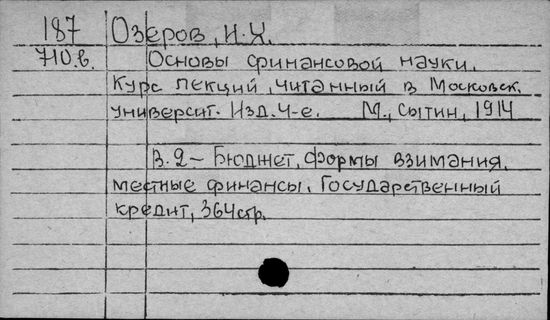 187 Озеров, И.Х.
710.в. Основы финансовой науки.
Курс лекций, читанный в Московск.
университ. Изд. 4-е. М., Сытин, 1914
В.2 — Бюджет, формы взимания,
местные финансы. Государственный
кредит, 364 стр.